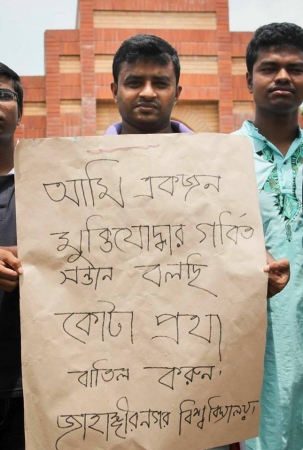 আমি একজন
মুক্তিযোদ্ধার গর্বিত
সন্তান বলছি
কোটা প্রথা
বাতিল করুন।
জাহাঙ্গীরনগর বিশ্ববিদ্যালয়।